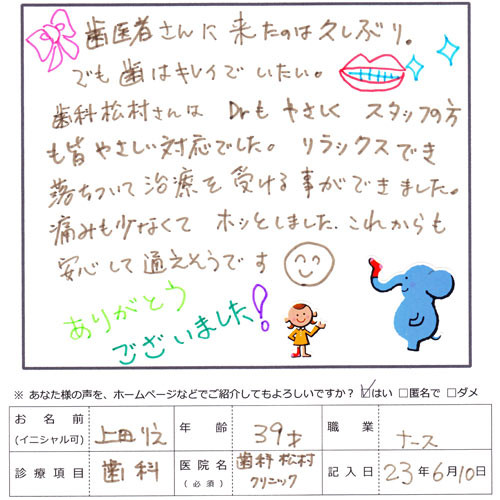 歯医者さんに来たのは久しぶり。
でも歯はキレイでいたい。
歯科松村さんは Drも やさしく スタッフの方
も皆やさしい対応でした。 リラックスでき
落ちついて治療を受ける事ができました。
痛みも少なくて ホッとしました。これからも
安心して通えそうです
ありがとう
ございました!
※ あなた様の声を、ホームページなどでご紹介してもよろしいですか? ☑はい □匿名で □ダメ
お名前 (イニシャル可) 上田りえ 年齢 39才 職業 ナース
診療項目 歯科 医院名 (必須) 歯科松村クリニック 記入日 23年6月10日